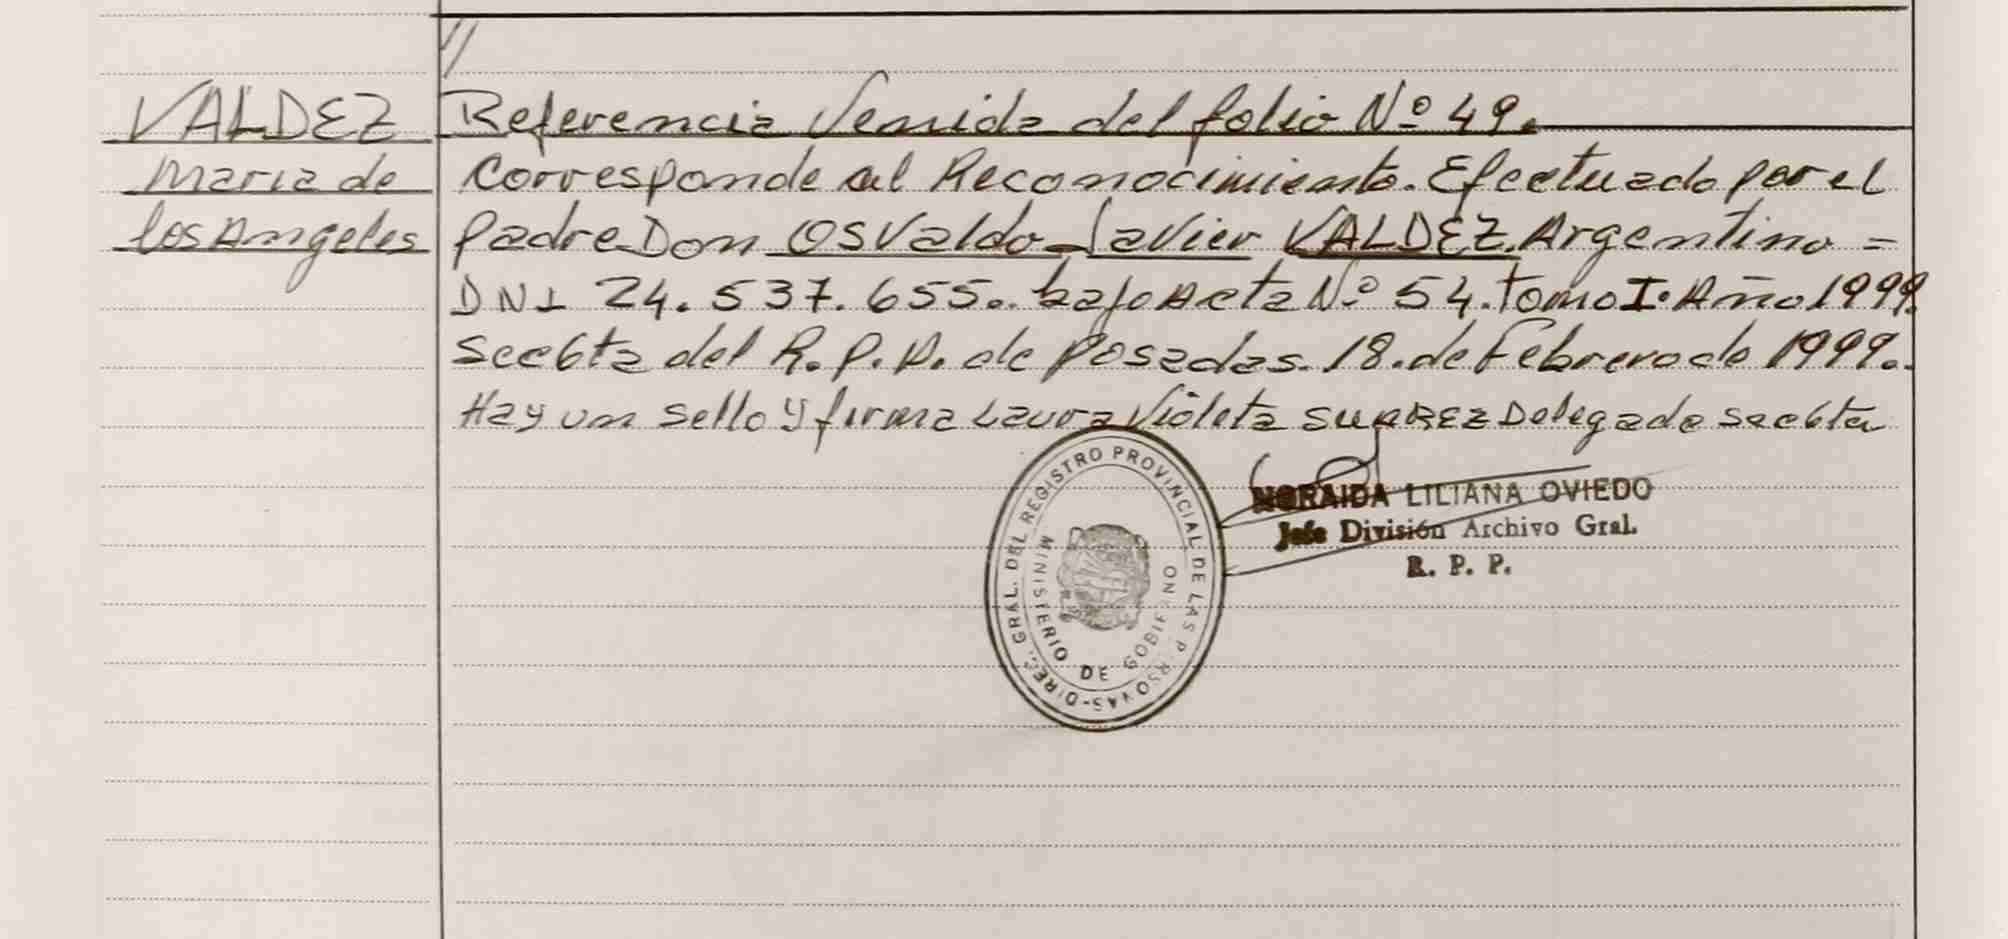 //
VALDEZ
Maria de
los Angeles
Referencia Venida del folio Nº 49.
Corresponde al Reconocimiento. Efectuado por el
padre Don Osvaldo Javier VALDEZ. Argentino =
DNI 24.537.655.. bajo Acta Nº 54. tomo I. Año 1999.
Secc6ta del R. P. P. de Posadas. 18. de Febrero de 1999..
Hay un sello y firma Laura Violeta SUAREZ Delegada secc6ta
DIREC. GRAL. DEL REGISTRO PROVINCIAL DE LAS P RSONAS-
MINISTERIO DE GOBIERNO
NORAIDA LILIANA OVIEDO
Jefe División Archivo Gral.
R. P. P.